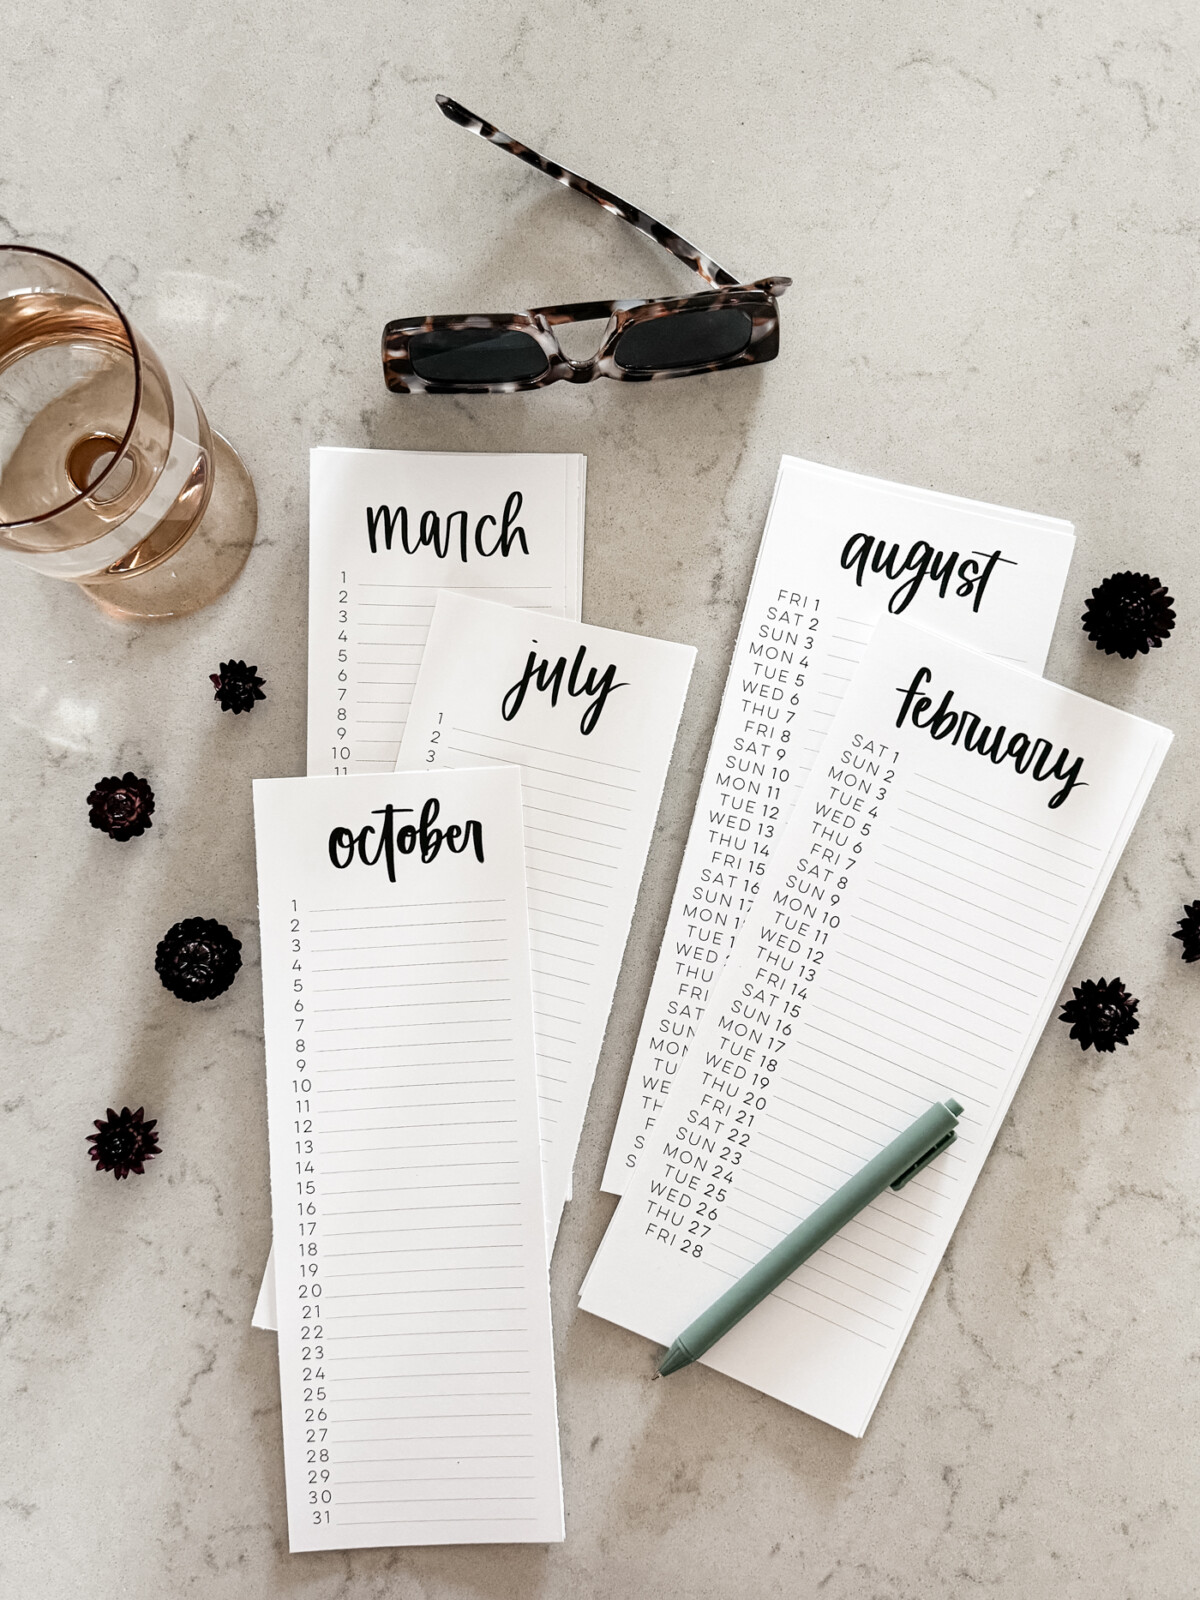 march
1
2
3
4
5
6
7
8
9
10
11
july
1
2
3
october
1
2
3
4
5
6
7
8
9
10
11
12
13
14
15
16
17
18
19
20
21
22
23
24
25
26
27
28
29
30
31
august
FRI 1
SAT 2
SUN 3
MON 4
TUE 5
WED 6
THU 7
FRI 8
SAT 9
SUN 10
MON 11
TUE 12
WED 13
THU 14
FRI 15
SAT 16
SUN 17
MON
TUE
WED
THU
FRI
SAT
SUN
february
SAT 1
SUN 2
MON 3
TUE 4
WED 5
THU 6
FRI 7
SAT 8
SUN 9
MON 10
TUE 11
WED 12
THU 13
FRI 14
SAT 15
SUN 16
MON 17
TUE 18
WED 19
THU 20
FRI 21
SAT 22
SUN 23
MON 24
TUE 25
WED 26
THU 27
FRI 28